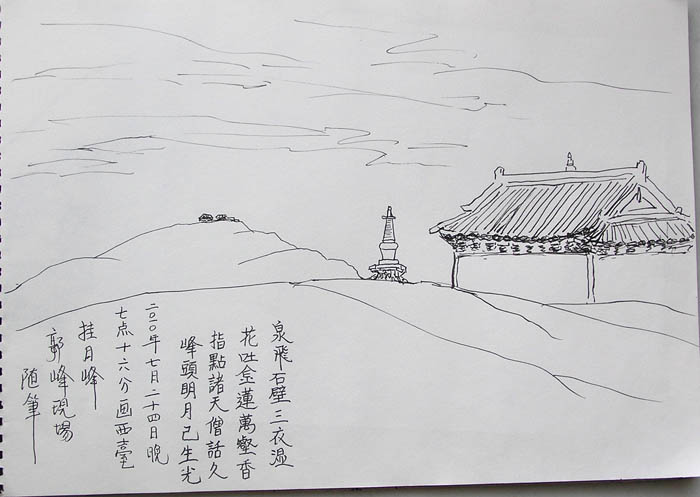 泉飛石壁三衣湿
花吐金蓮萬壑香
指點諸天僧話久
峰頭明月已生光
二〇一〇年七月二十四日晚
七点十六分画西臺
挂月峰
郭峰現場
随筆